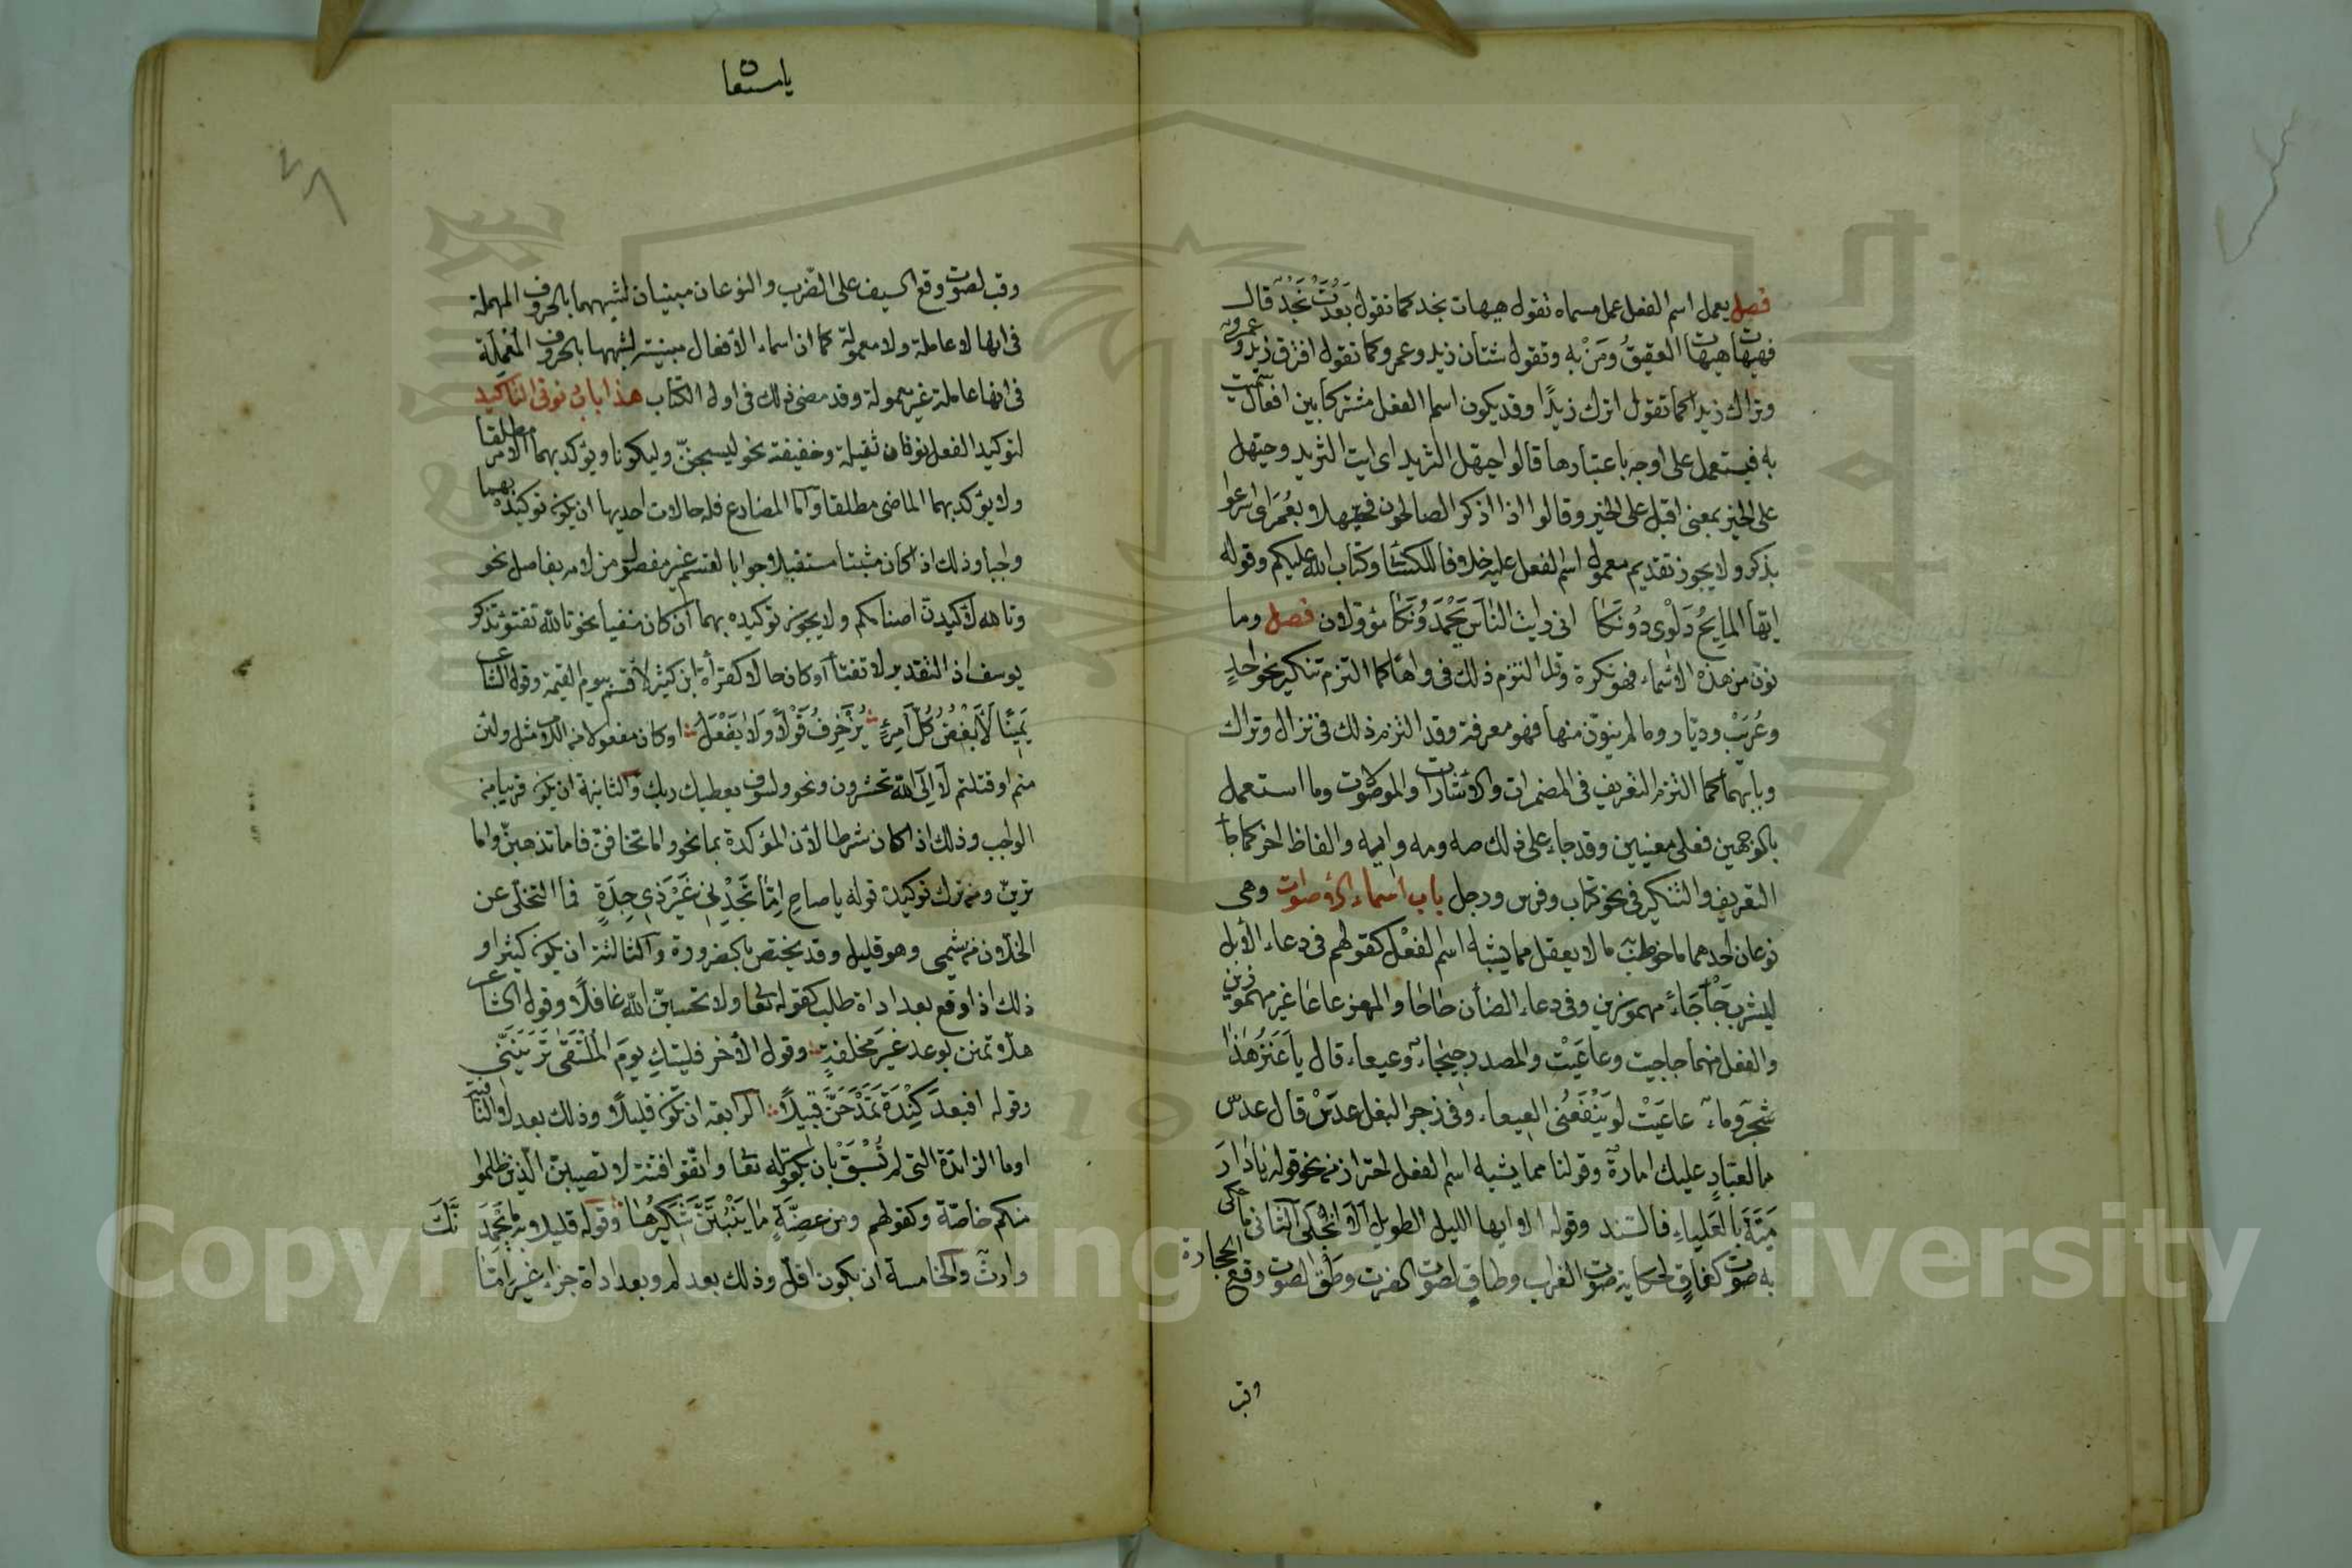 فصل يعمل اسم الفعل عمل مسماه تقول هيهات نجد كما تقول بَعُدَتْ نَجْدٌ قال
فهيهات هيهات العقيقُ ومَنْ به وتقول شتان زيد وعمرو كما تقول افترق زيد وعمرو
وتراك زيدا كما تقول اترك زيدًا وقد يكون اسم الفعل مشتركا بين افعال سميت
به فيستعمل على اوجه باعتبارها قالوا حيهل الثريد اى ايت الثريد وحيهل
على الخير بمعنى اقبل على الخير وقالوا اذا ذكر الصالحون فحيهلا بعُمَر اى اسرعوا
بذكره ولا يجوز تقديم معمول اسم الفعل عليه خلافا للكسائى وكتاب الله عليكم وقوله
ايها المايحُ دَلْوى دُونَكا انى رايت الناسَ يَحْمَدُونَكا مؤولان فصل وما
نون من هذه الاسماء فهو نكرة وقد التزم ذلك فى واهًا كما التزم تنكير نحو احدٍ
وعُرَيْبٍ وديّار وما لم ينوّن منها فهو معرفة وقد التزم ذلك فى نزال وتراك
وبابهما كما التزم التعريف فى المضمرات والاشارات والموصولات وما استعمل
بالوجهين فعلى معنيين وقد جاء على ذلك صه ومه وايه والفاظ اخر كما جا
التعريف والتنكير فى نحو كتاب وفرس ورجل باب اسماء الاصوات وهى
نوعان احدهما ما خوطب ما لا يعقل مما يشبه اسم الفعل كقولهم فى دعاء الابل
ليشرب جَأْجَأْ مهموزين وفى دعاء الضأن حاحا والمعز عاعا غير مهموزين
والفعل منهما حاحيت وعاعَيْت والمصدر حيحاء وعيعاء قال يا عَنَزُ هَذَا
شجَر وماء عاعَيْت لو يَنْفَعُنى العِيعاء وفى زجر البغل عدَسْ قال عدسْ
ما لعبّادٍ عليك امارة وقولنا مما يشبه اسم الفعل احتراز من نحو قوله يا دارَ
مَيّةَ بالعَلياء فالسَّند وقوله الا ايها الليل الطويل الا انْجَلى الثانى ما حكى
به صوت كغاقٍ لحكاية صوت الغراب وطاقٍ لصوت الضرب وطَقْ لصوت وقع الحجارة
وقب
يا مستعا
وقب لصوت وقع السيف على الضرب والنوعان مبنيان لشبههما بالحروف المهملة
فى انها لا عاملة ولا معمولة كما ان اسماء الافعال مبنية لشبهها بالحروف المُعْمَلة
فى انها عاملة غير معمولة وقد مضى ذلك فى اول الكتاب هذا باب نونى التاكيد
لتوكيد الفعل نونان ثقيلة وخفيفة نحو ليسجننّ وليكونا ويؤكد بهما الامر مطلقا
ولا يؤكد بهما الماضى مطلقا واما المضارع فله حالات احديها ان يكون توكيده بهما
واجبا وذلك اذا كان مثبتا مستقبلا جوابا لقسم غير مفصول من لامه بفاصل نحو
وتالله لاكيدن اصنامكم ولا يجوز توكيده بهما ان كان منفيا نحو تالله تفتؤ تذكر
يوسف اذ التقدير لا تفتأ او كان حالا كقرأة ابن كثير لاقسم بيوم القيمة وقول الشاعر
يَمِينًا لَأَبْغُضُ كُلَّ امرِئٍ يُزَخْرِفُ قَوْلًا وَلَا يَفْعَلُ او كان مفعولا من اللام مثل ولئن
متم او قتلتم لَإِلَى الله تحشرون ونحو ولسوف يعطيك ربك والثانية ان يكون قريبا من
الواجب وذلك اذا كان شرطا لان المؤكدة بما نحو واما تخافنّ فاما تذهبنّ واما
ترينّ ومن ترك توكيده قوله يا صاح اِمّا تَجِدْنِى غَيْرَ ذِى جِدَةٍ فما التخلّى عن
الخلان من شيمى وهو قليل وقد يختص بالضرورة والثالثة ان يكون كثيرا و
ذلك اذا وقع بعد اداة طلب كقوله تعا ولا تحسبنّ الله غافلًا وقول الشاعر
هلّا تمنن بوعد غيرَ مخلفةٍ وقول الاخر فليتك يومَ المُلْتَقَى تَرَيَنَّنى
وقوله افبعدَ كِنْدَةَ تَمْدَحَنَّ قبيلًا الرابعة ان يكون قليلًا وذلك بعد لا النافية
او ما الزائدة التى لم تُسْبَقْ بان كقوله تعا واتقوا فتنة لا تصيبنّ الذين ظلموا
منكم خاصّة وكقولهم ومن عِضَّةٍ مَا يَنْبُتَنَّ شَكِيرُهَا وقوله قليلا به ما يحْمَدَنَّكَ
وارثٌ والخامسة ان يكون اقلّ وذلك بعد لم وبعد اداة جزاء غير اِمّا
Copyright © King Saud University